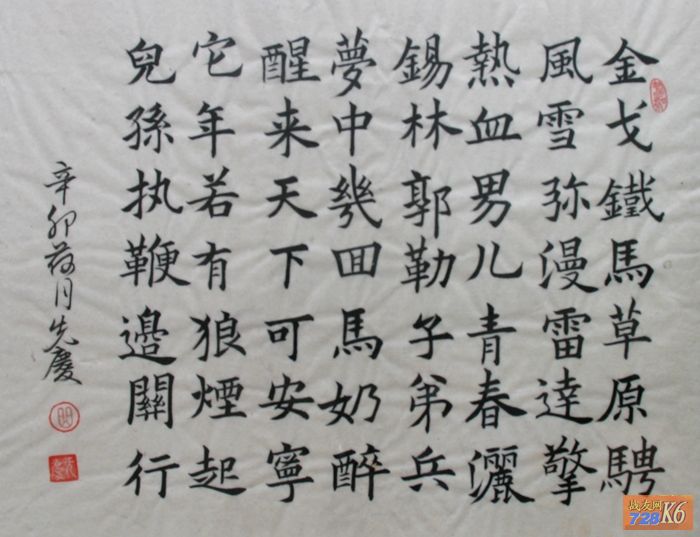 金戈鐵馬草原騁
風雪弥漫雷達擎
熱血男儿青春灑
錫林郭勒子弟兵
夢中幾回馬奶醉
醒来天下可安寧
它年若有狼煙起
兒孫执鞭邊關行
辛卯荷月先慶
战友网
728K6